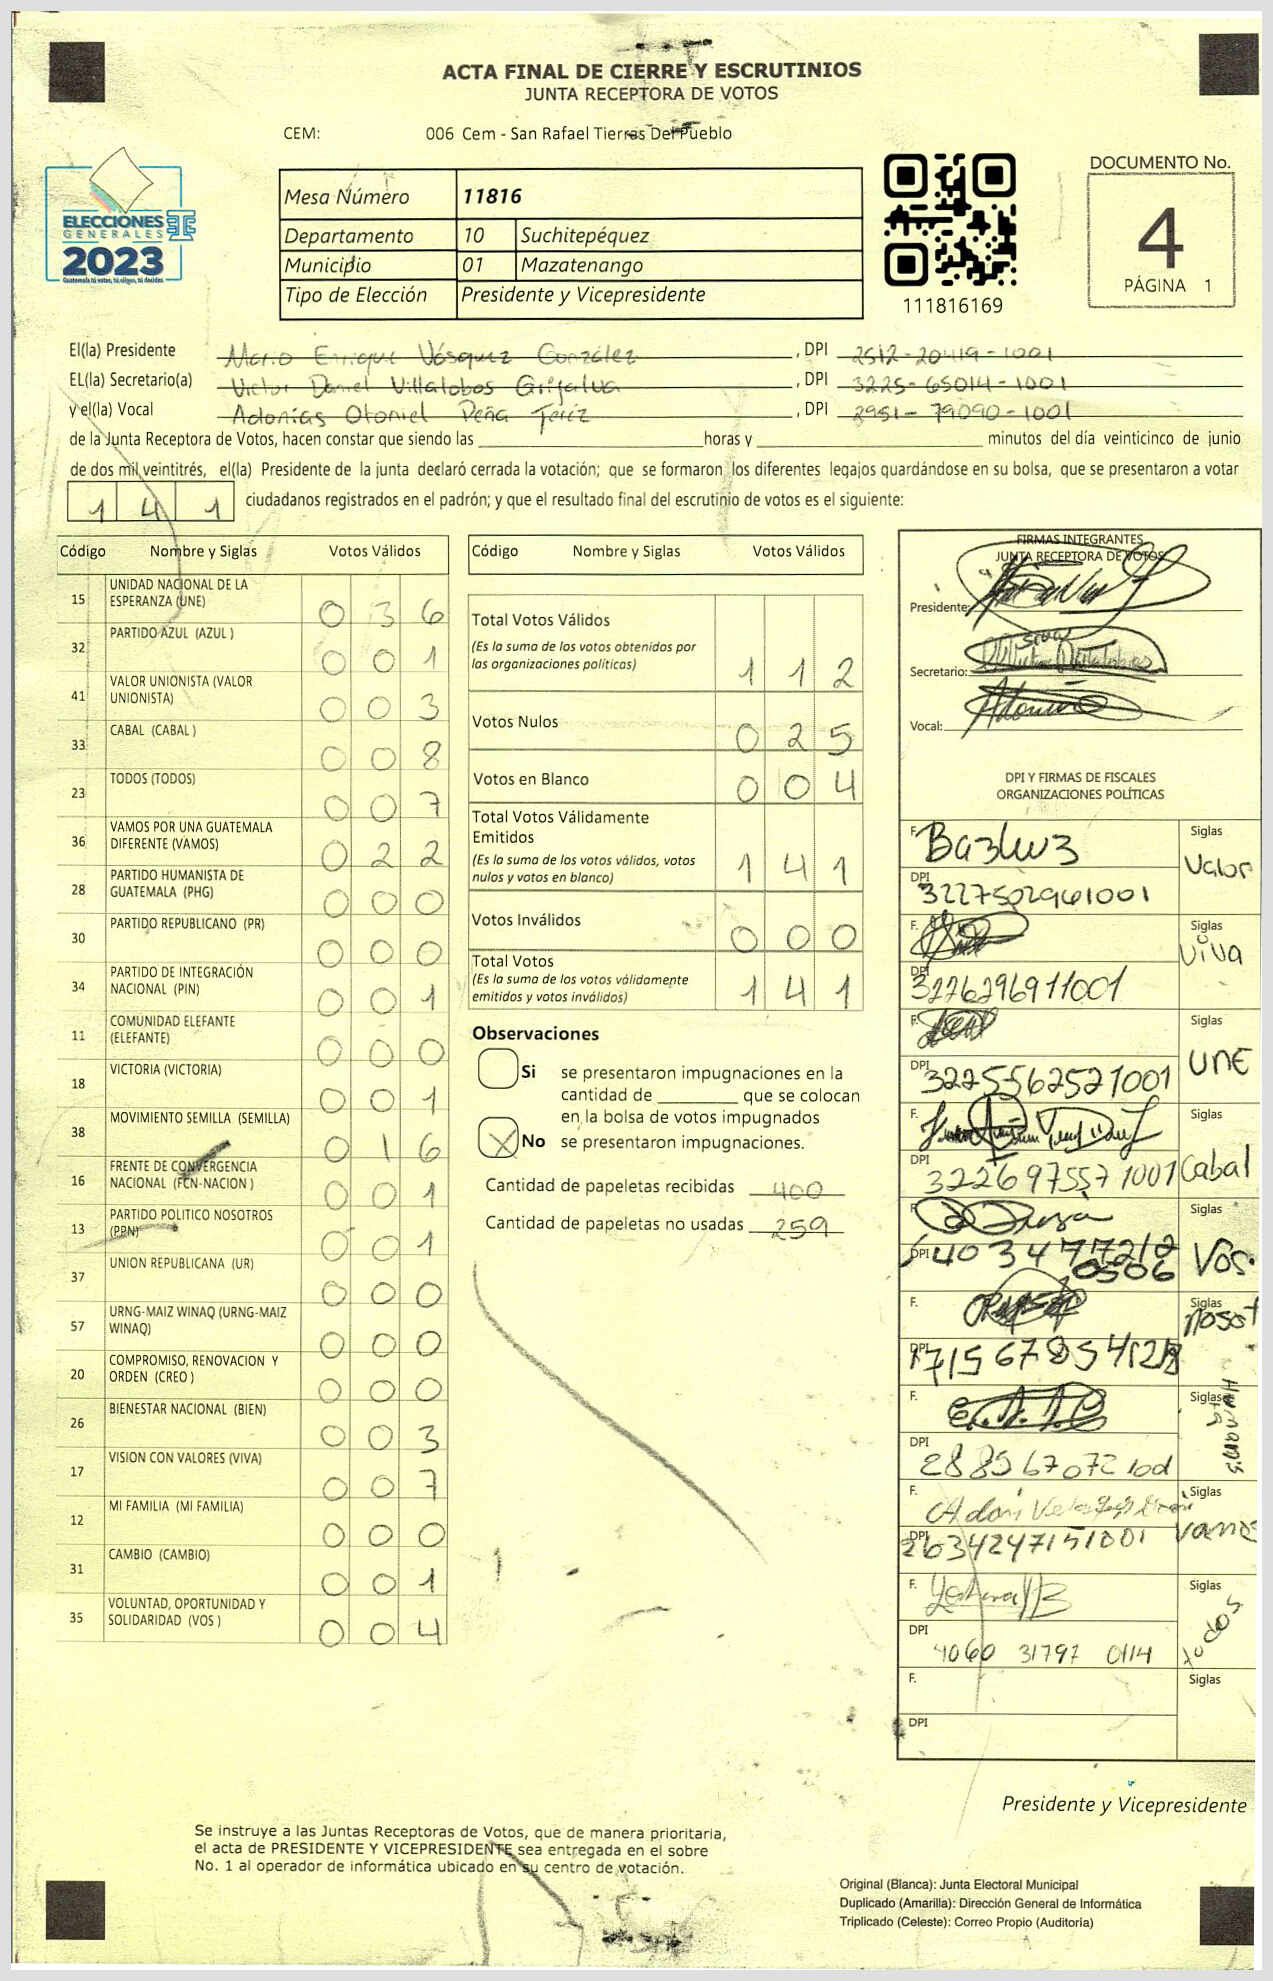 ACTA FINAL DE CIERRE Y ESCRUTINIOS
JUNTA RECEPTORA DE VOTOS
CEM: 006 Cem - San Rafael Tierras Del Pueblo
ELECCIONES
GENERALES
2023
Guatemala tú votas, tú eliges, tú decides
Mesa Número 11816
Departamento 10 Suchitepéquez
Municipio 01 Mazatenango
Tipo de Elección Presidente y Vicepresidente
111816169
DOCUMENTO No.
4
PÁGINA 1
El(la) Presidente Mario Enrique Vásquez González, DPI 2512-20419-1001
EL(la) Secretario(a) Victor Daniel Villalobos Grijalva, DPI 3225-65014-1001
y el(la) Vocal Adonías Otoniel Peña, DPI 2951-79090-1001
de la Junta Receptora de Votos, hacen constar que siendo las horas y minutos del día veinticinco de junio
de dos mil veintitrés, el(la) Presidente de la junta declaró cerrada la votación; que se formaron los diferentes legajos quardándose en su bolsa, que se presentaron a votar
1 4 1 ciudadanos registrados en el padrón; y que el resultado final del escrutinio de votos es el siguiente:
Código Nombre y Siglas Votos Válidos
15 UNIDAD NACIONAL DE LA ESPERANZA (UNE) 0 3 6
32 PARTIDO AZUL (AZUL ) 0 0 1
41 VALOR UNIONISTA (VALOR UNIONISTA) 0 0 3
33 CABAL (CABAL ) 0 0 8
23 TODOS (TODOS) 0 0 7
36 VAMOS POR UNA GUATEMALA DIFERENTE (VAMOS) 0 2 2
28 PARTIDO HUMANISTA DE GUATEMALA (PHG) 0 0 0
30 PARTIDO REPUBLICANO (PR) 0 0 0
34 PARTIDO DE INTEGRACIÓN NACIONAL (PIN) 0 0 1
11 COMUNIDAD ELEFANTE (ELEFANTE) 0 0 0
18 VICTORIA (VICTORIA) 0 0 1
38 MOVIMIENTO SEMILLA (SEMILLA) 0 1 6
16 FRENTE DE CONVERGENCIA NACIONAL (FCN-NACION ) 0 0 1
13 PARTIDO POLITICO NOSOTROS (PPN) 0 0 1
37 UNION REPUBLICANA (UR) 0 0 0
57 URNG-MAIZ WINAQ (URNG-MAIZ WINAQ) 0 0 0
20 COMPROMISO, RENOVACION Y ORDEN (CREO ) 0 0 0
26 BIENESTAR NACIONAL (BIEN) 0 0 3
17 VISION CON VALORES (VIVA) 0 0 7
12 MI FAMILIA (MI FAMILIA) 0 0 0
31 CAMBIO (CAMBIO) 0 0 1
35 VOLUNTAD, OPORTUNIDAD Y SOLIDARIDAD (VOS ) 0 0 4
Código Nombre y Siglas Votos Válidos
Total Votos Válidos 1 1 2
(Es la suma de los votos obtenidos por
las organizaciones políticas)
Votos Nulos 0 2 5
Votos en Blanco 0 0 4
Total Votos Válidamente
Emitidos 1 4 1
(Es la suma de los votos válidos, votos
nulos y votos en blanco)
Votos Inválidos 0 0 0
Total Votos 1 4 1
(Es la suma de los votos válidamente
emitidos y votos inválidos)
Observaciones
Si se presentaron impugnaciones en la
cantidad de que se colocan
en la bolsa de votos impugnados
X No se presentaron impugnaciones.
Cantidad de papeletas recibidas 400
Cantidad de papeletas no usadas 259
FIRMAS INTEGRANTES
JUNTA RECEPTORA DE VOTOS
Presidente:
Secretario:
Vocal:
DPI Y FIRMAS DE FISCALES
ORGANIZACIONES POLÍTICAS
F. Siglas Valor
DPI 3227502961001
F. Siglas Viva
DPI 3276296911001
F. Siglas UNE
DPI 3225562521001
F. Siglas Cabal
DPI 3226975571001
F. Siglas Vos.
DPI
F. Siglas nosot
DPI
F. Siglas
DPI
F. Siglas Vamos
DPI 2634247151001
F. Siglas todos
DPI 4060 31797 0114
F. Siglas
DPI
Presidente y Vicepresidente
Se instruye a las Juntas Receptoras de Votos, que de manera prioritaria,
el acta de PRESIDENTE Y VICEPRESIDENTE sea entregada en el sobre
No. 1 al operador de informática ubicado en su centro de votación.
Original (Blanca): Junta Electoral Municipal
Duplicado (Amarilla): Dirección General de Informática
Triplicado (Celeste): Correo Propio (Auditoría)